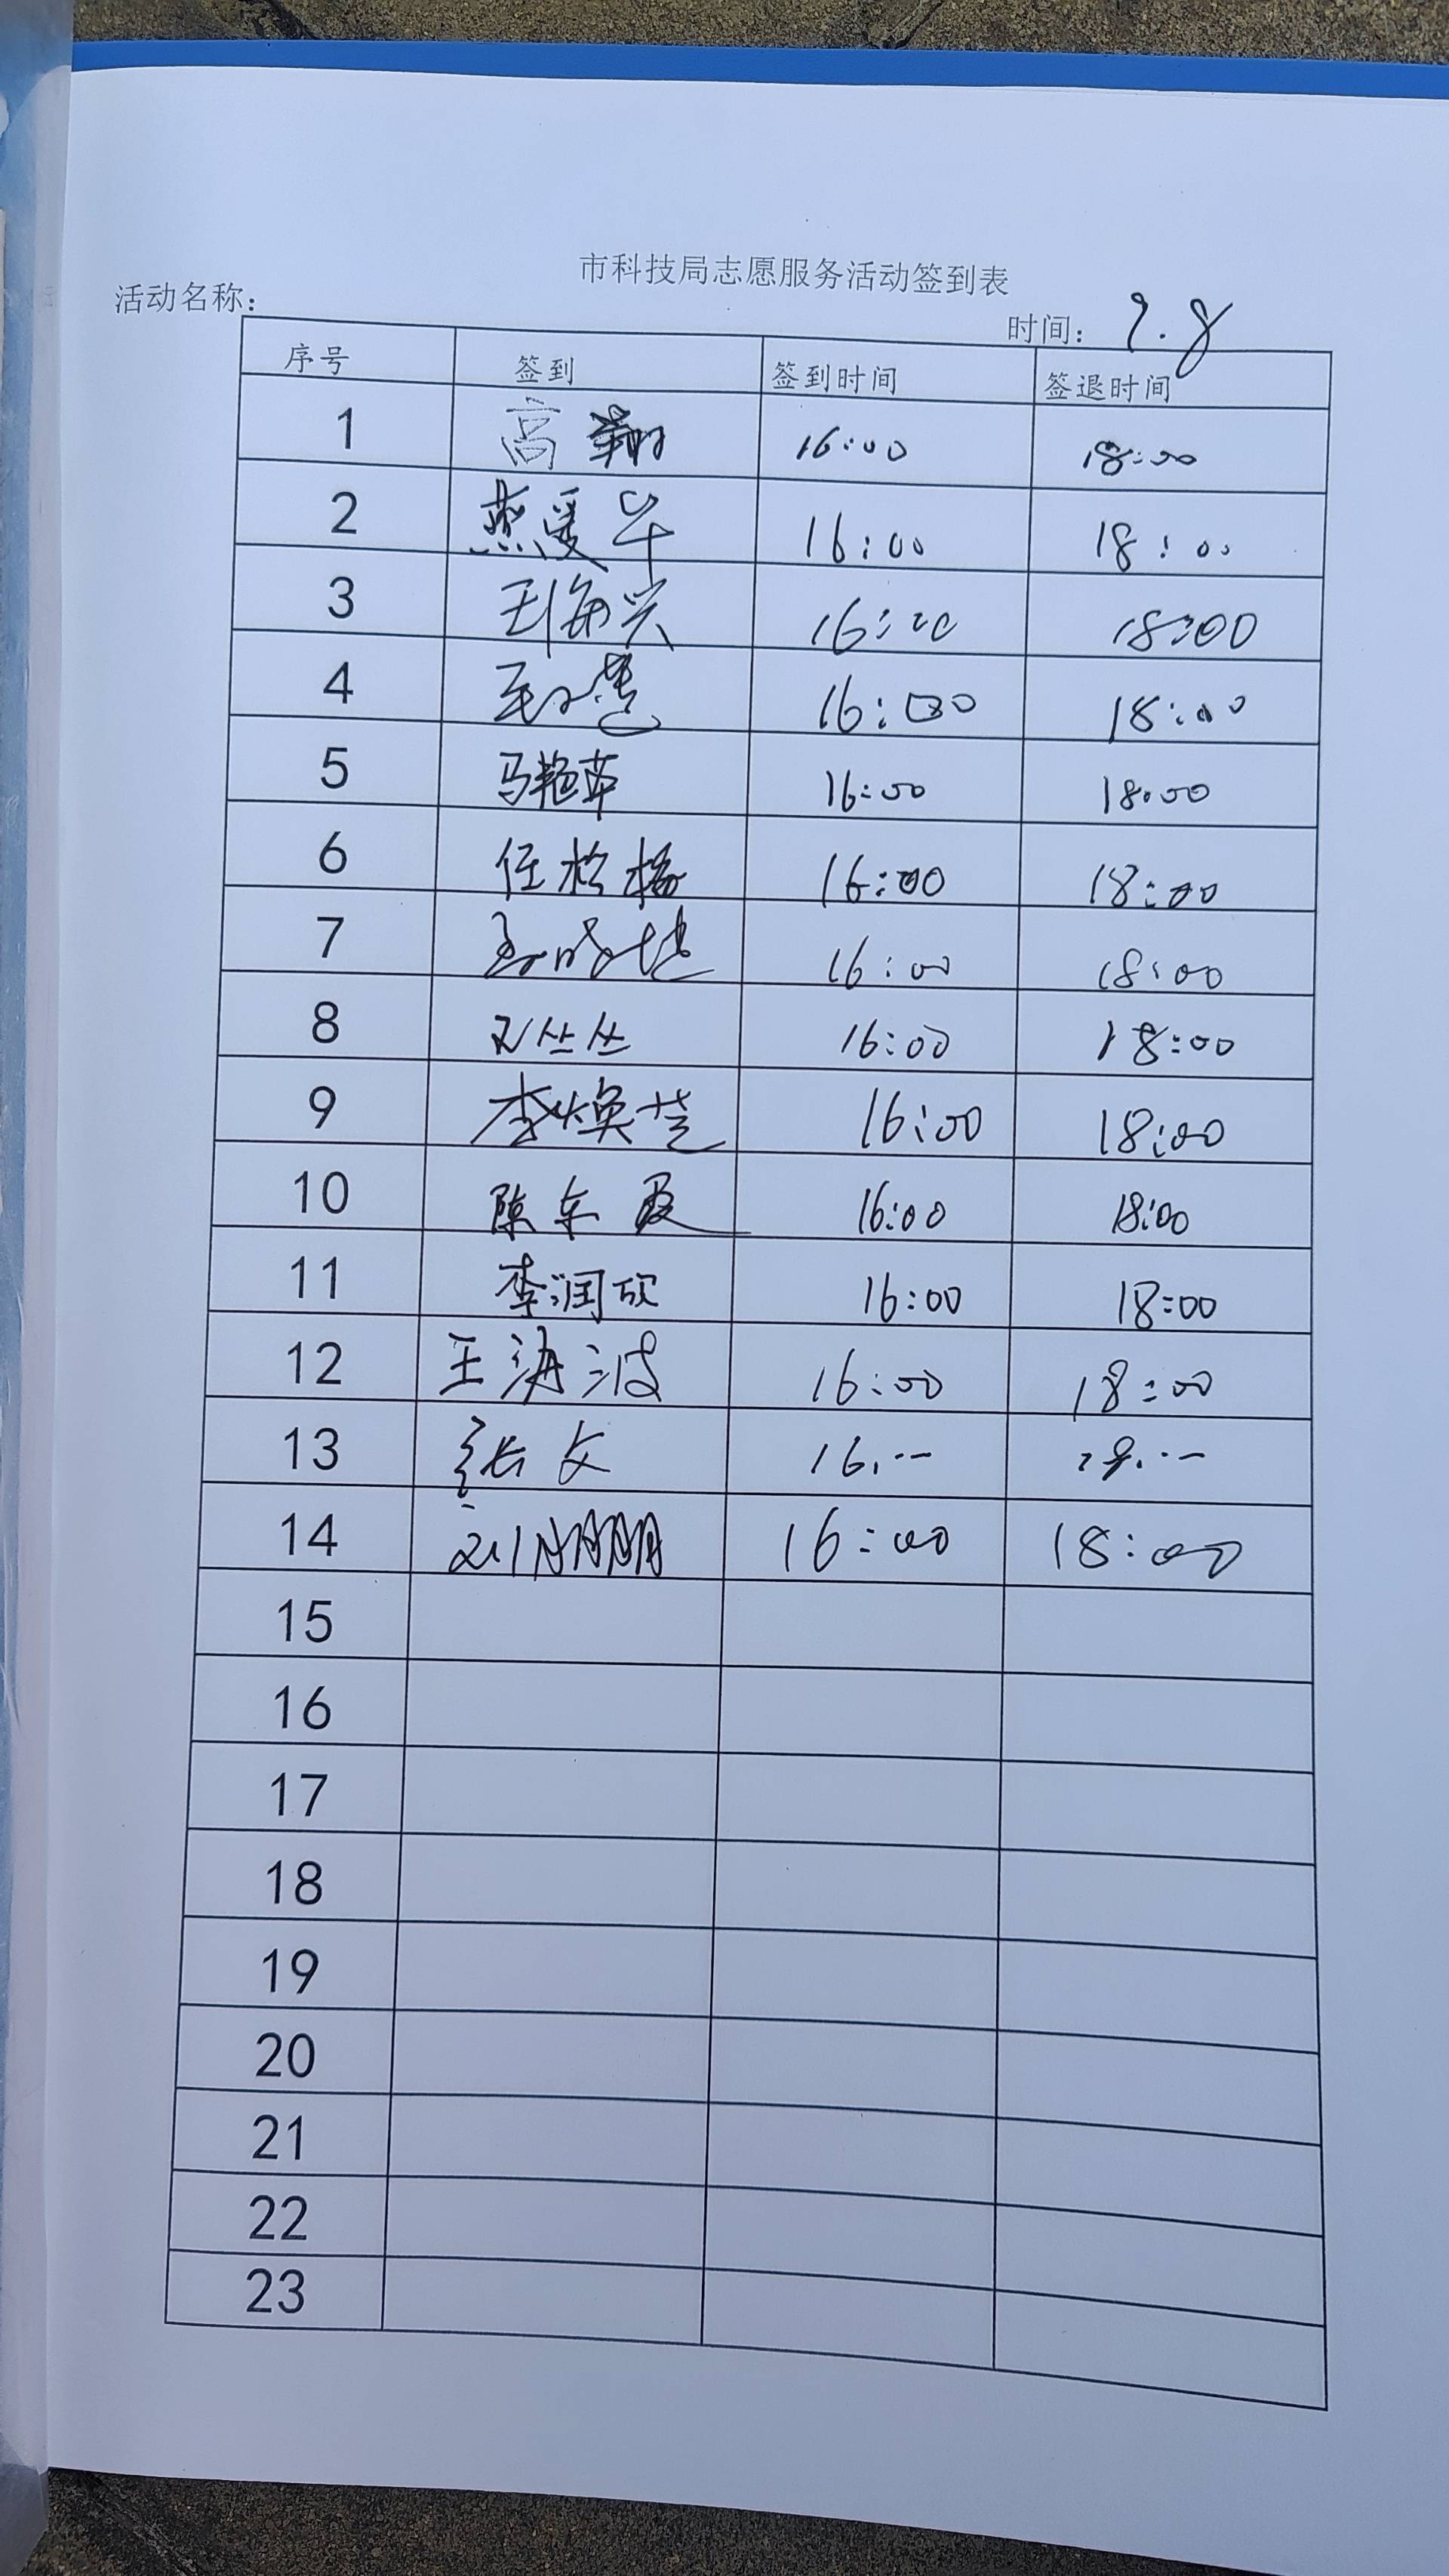 市科技局志愿服务活动签到表
活动名称：
时间： 9.8
序号 签到 签到时间 签退时间
1 高翔 16:00 18:00
2 燕爱华 16:00 18:00
3 王海兴 16:00 18:00
4 16:00 18:00
5 马艳萍 16:00 18:00
6 任松梅 16:00 18:00
7 16:00 18:00
8 丛丛 16:00 18:00
9 李焕芝 16:00 18:00
10 陈东霞 16:00 18:00
11 李润欣 16:00 18:00
12 王海波 16:00 18:00
13 张文 16:00 18:00
14 刘朋朋 16:00 18:00
15
16
17
18
19
20
21
22
23